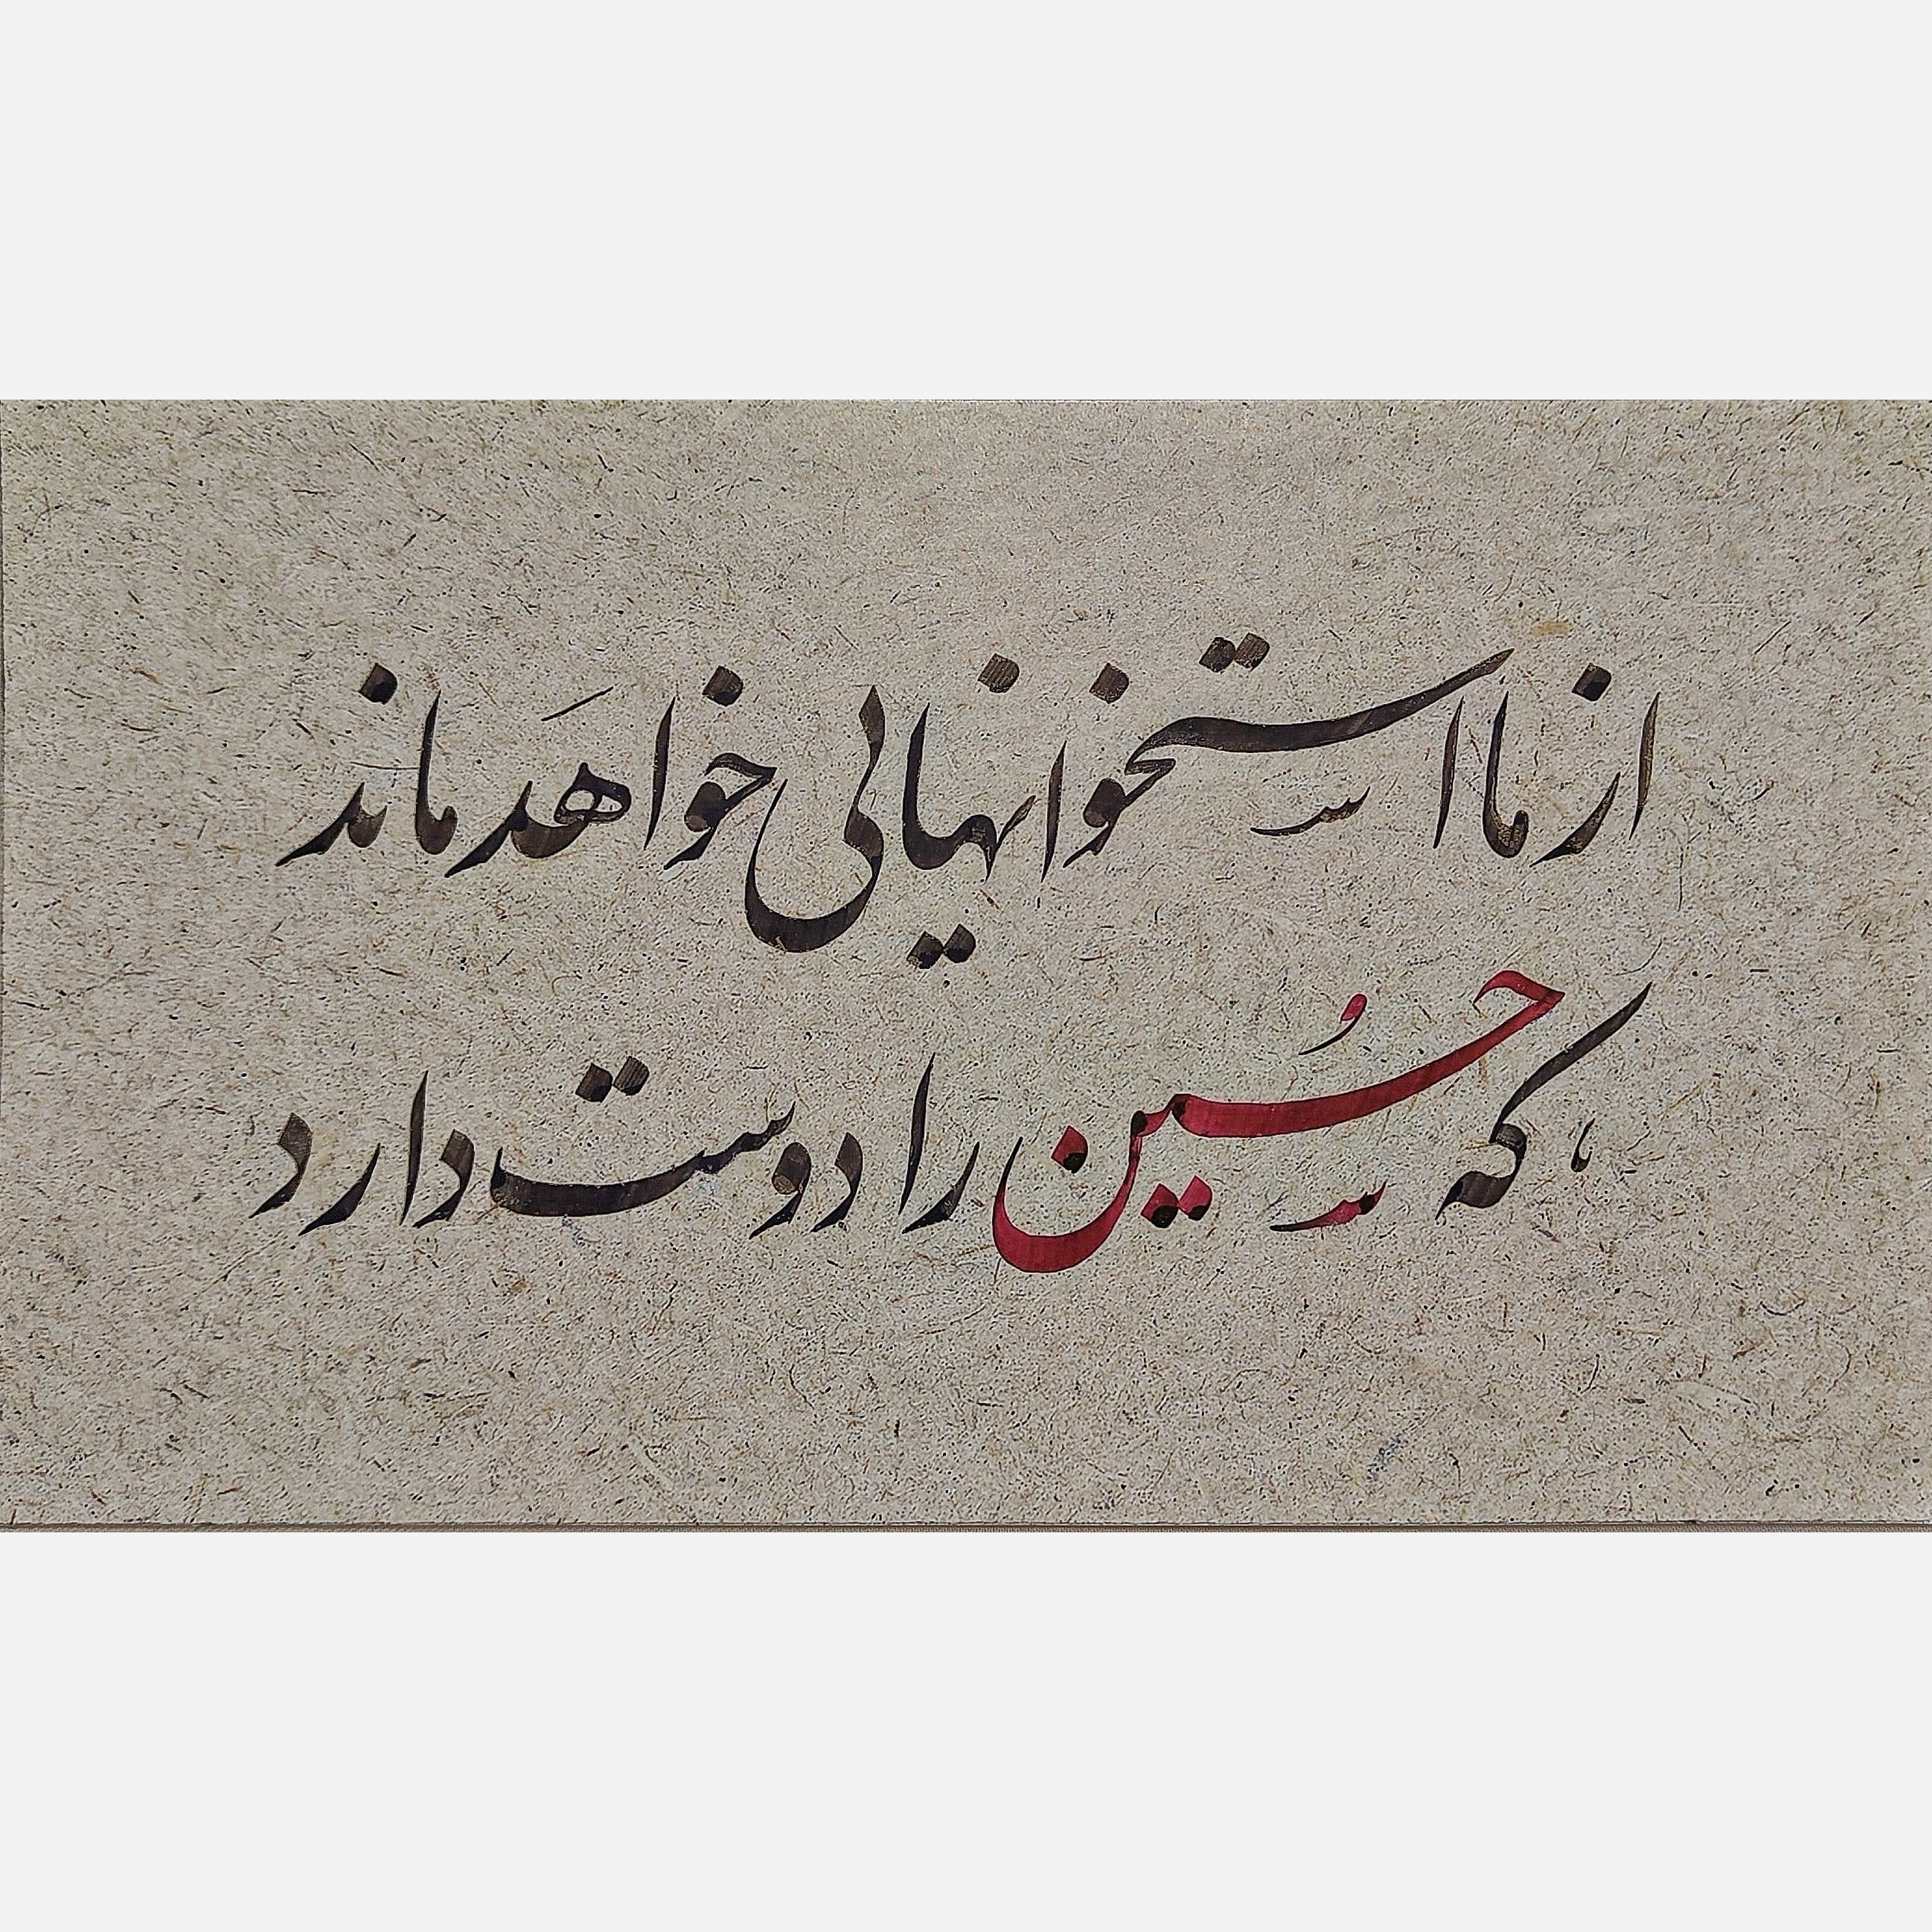 از ما استخوانهایی خواهَد ماند
که حُسین را دوست دارد